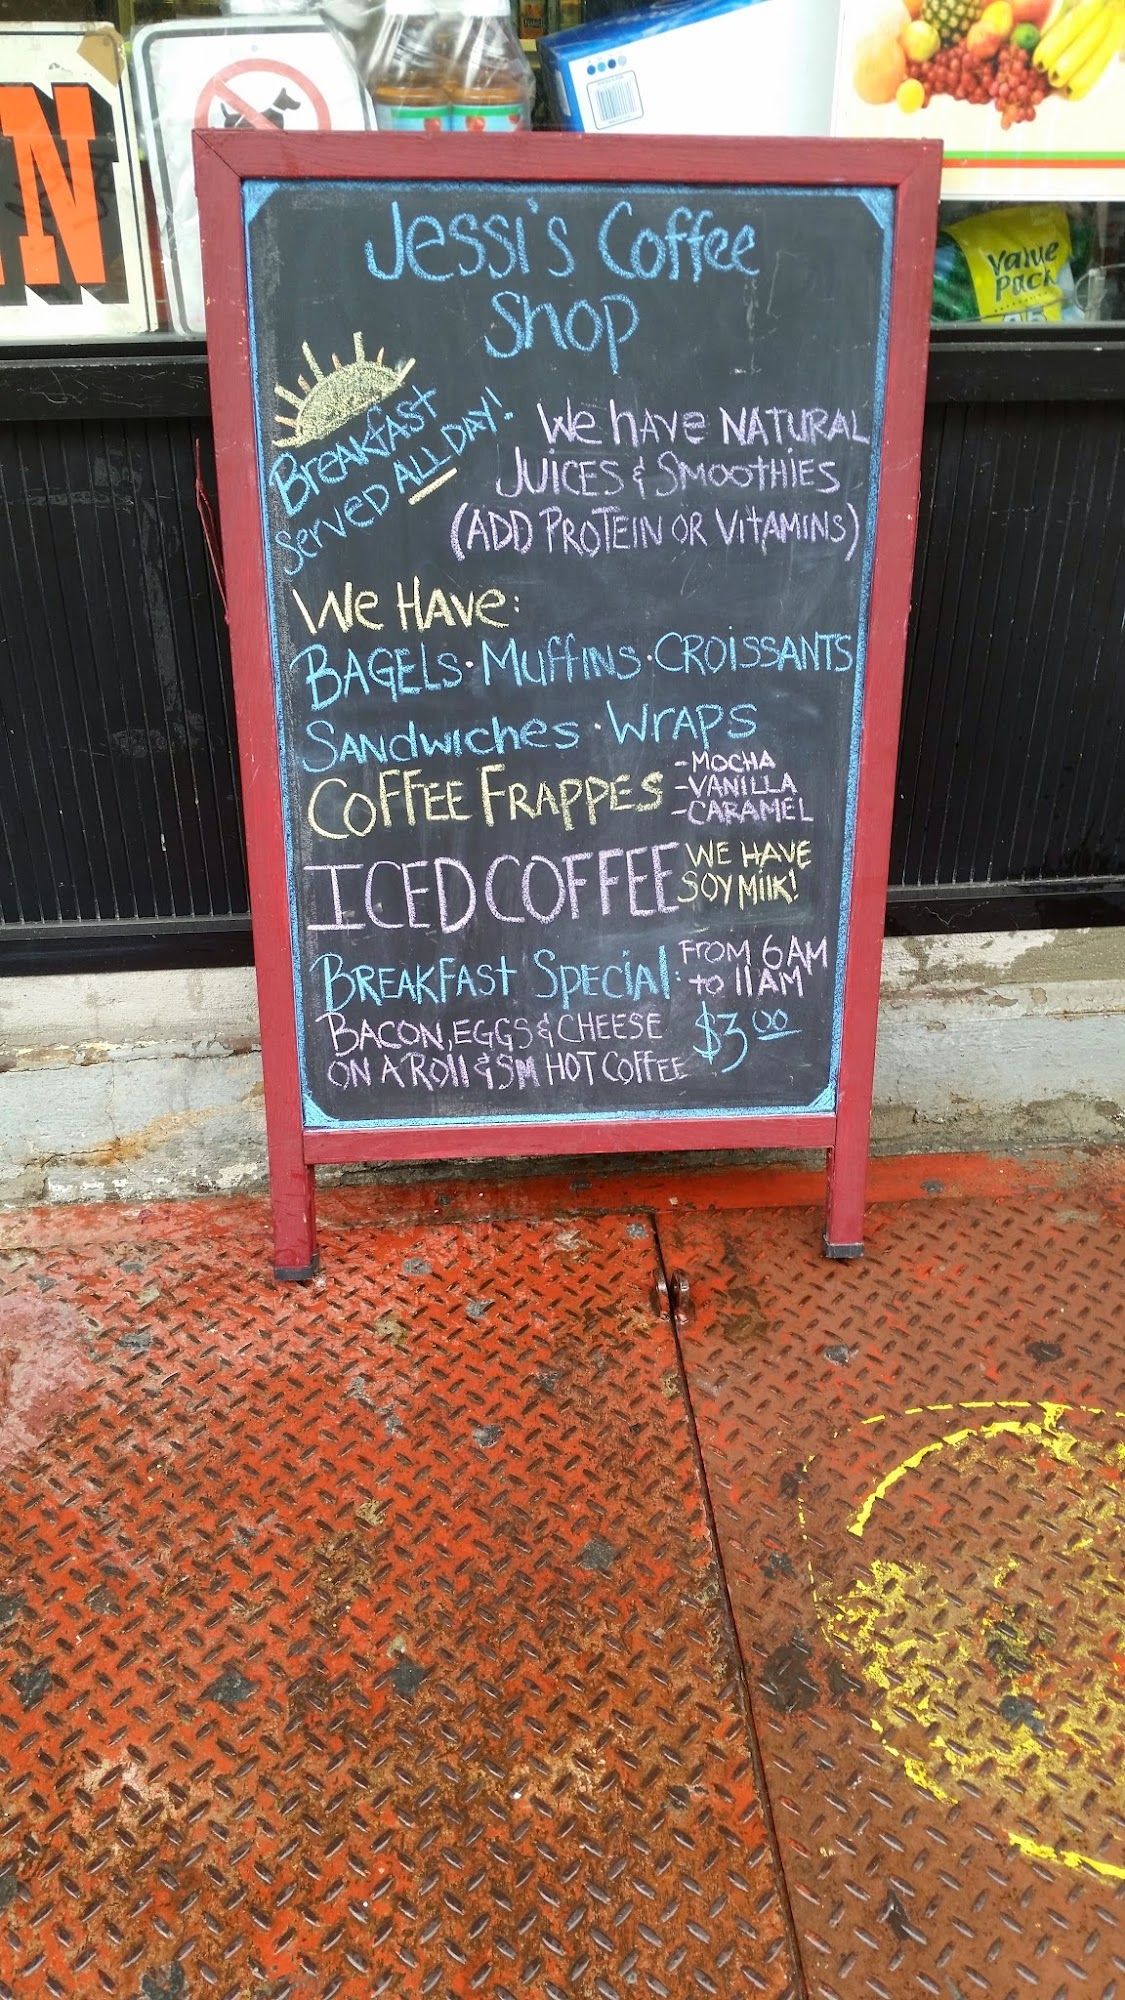 N
Value
Pack
Jessi's Coffee
Shop
Breakfast
Served ALL DAY!
We have NATURAL
JUICES & SMOOTHIES
(ADD PROTEIN OR VITAMINS)
We HAVE:
BAGELS · Muffins · CROISSANTS
SANDwiches · WRAPS
COFFEE FRAPPES
-MOCHA
-VANILLA
-CARAMEL
ICED COFFEE
WE HAVE
SOY Milk!
BREAKFAST Special:
FROM 6AM
to 11AM
BACON, EGGS & CHEESE
ON A ROll & SM HOT COFFEE
$3.00